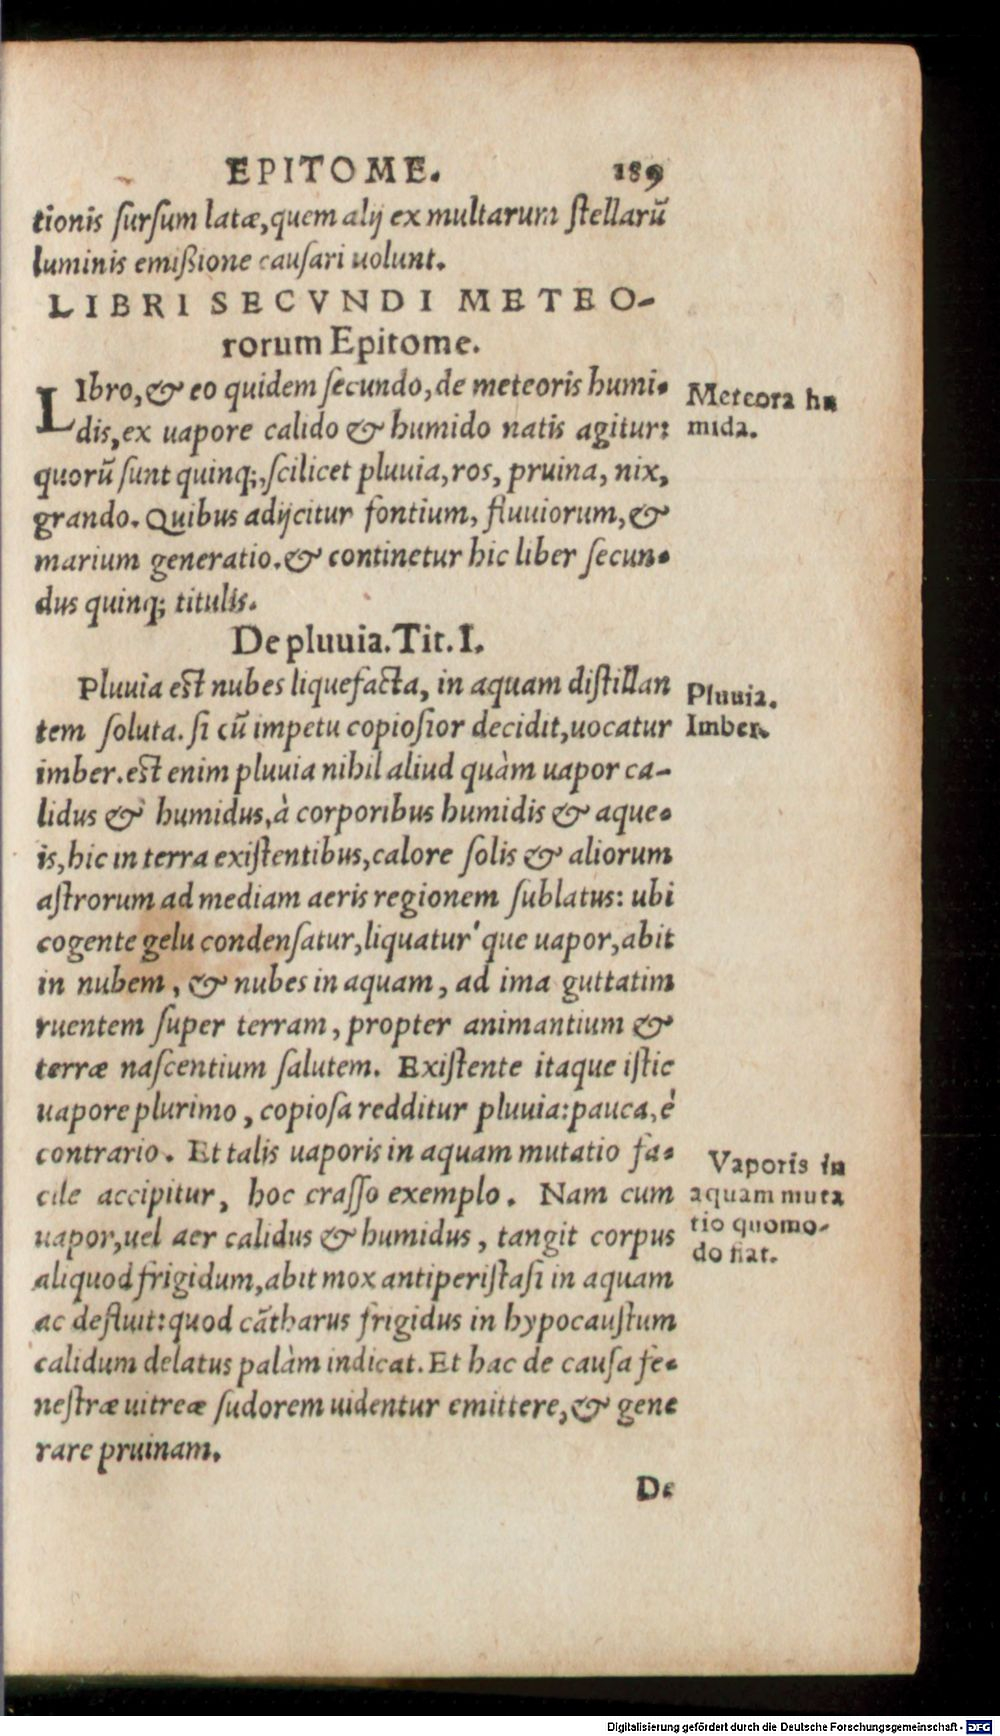 EPITOME. 189
tionis ſurſum latæ, quem alij ex multarum ſtellarũ
luminis emißione cauſari uolunt.
LIBRI SECVNDI METEO-
rorum Epitome.
LIbro, & eo quidem ſecundo, de meteoris humi-
dis, ex uapore calido & humido natis agitur:
quorũ ſunt quinq;, ſcilicet pluuia, ros, pruina, nix,
grando. Quibus adijcitur fontium, fluuiorum, &
marium generatio. & continetur hic liber ſecun-
dus quinq; titulis.
Meteora hu
mida.
De pluuia. Tit. I.
Pluuia eſt nubes liquefacta, in aquam diſtillan
tem ſoluta. ſi cũ impetu copioſior decidit, uocatur
imber. eſt enim pluuia nihil aliud quàm uapor ca-
lidus & humidus, à corporibus humidis & aque-
is, hic in terra exiſtentibus, calore ſolis & aliorum
aſtrorum ad mediam aeris regionem ſublatus: ubi
cogente gelu condenſatur, liquatur'que uapor, abit
in nubem, & nubes in aquam, ad ima guttatim
ruentem ſuper terram, propter animantium &
terræ naſcentium ſalutem. Exiſtente itaque iſtic
uapore plurimo, copioſa redditur pluuia: pauca, è
contrario. Et talis uaporis in aquam mutatio fa-
cile accipitur, hoc craſſo exemplo. Nam cum
uapor, uel aer calidus & humidus, tangit corpus
aliquod frigidum, abit mox antiperiſtaſi in aquam
ac defluit: quod cãtharus frigidus in hypocauſtum
calidum delatus palàm indicat. Et hac de cauſa fe-
neſtræ uitreæ ſudorem uidentur emittere, & gene
rare pruinam.
Pluuia.
Imber.
Vaporis in
aquam muta
tio quomo-
do fiat.
De
Digitalisierung gefördert durch die Deutsche Forschungsgemeinschaft - DFG